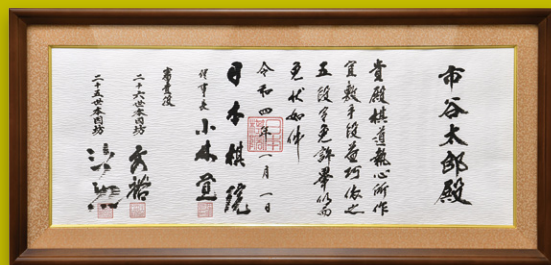 市谷太郎殿
貴殿棋道執心所作
宜敷手段益巧依之
五段令免許畢仍而
免状如件
令和四年一月一日
日本棋院
理事長 小林覚
審査役
二十六世本因坊 文裕
二十五世本因坊